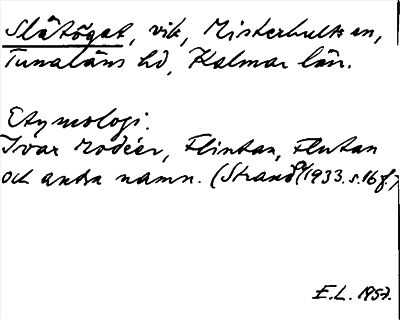 Slätögat, vik, Misterhults sn,
Tunaläns hd, Kalmar län.
Etymologi.
Ivar Modéer, Flintan, Flutan
och andra namn. (Strand 1933. s. 16 f.)
E.L. 1957.